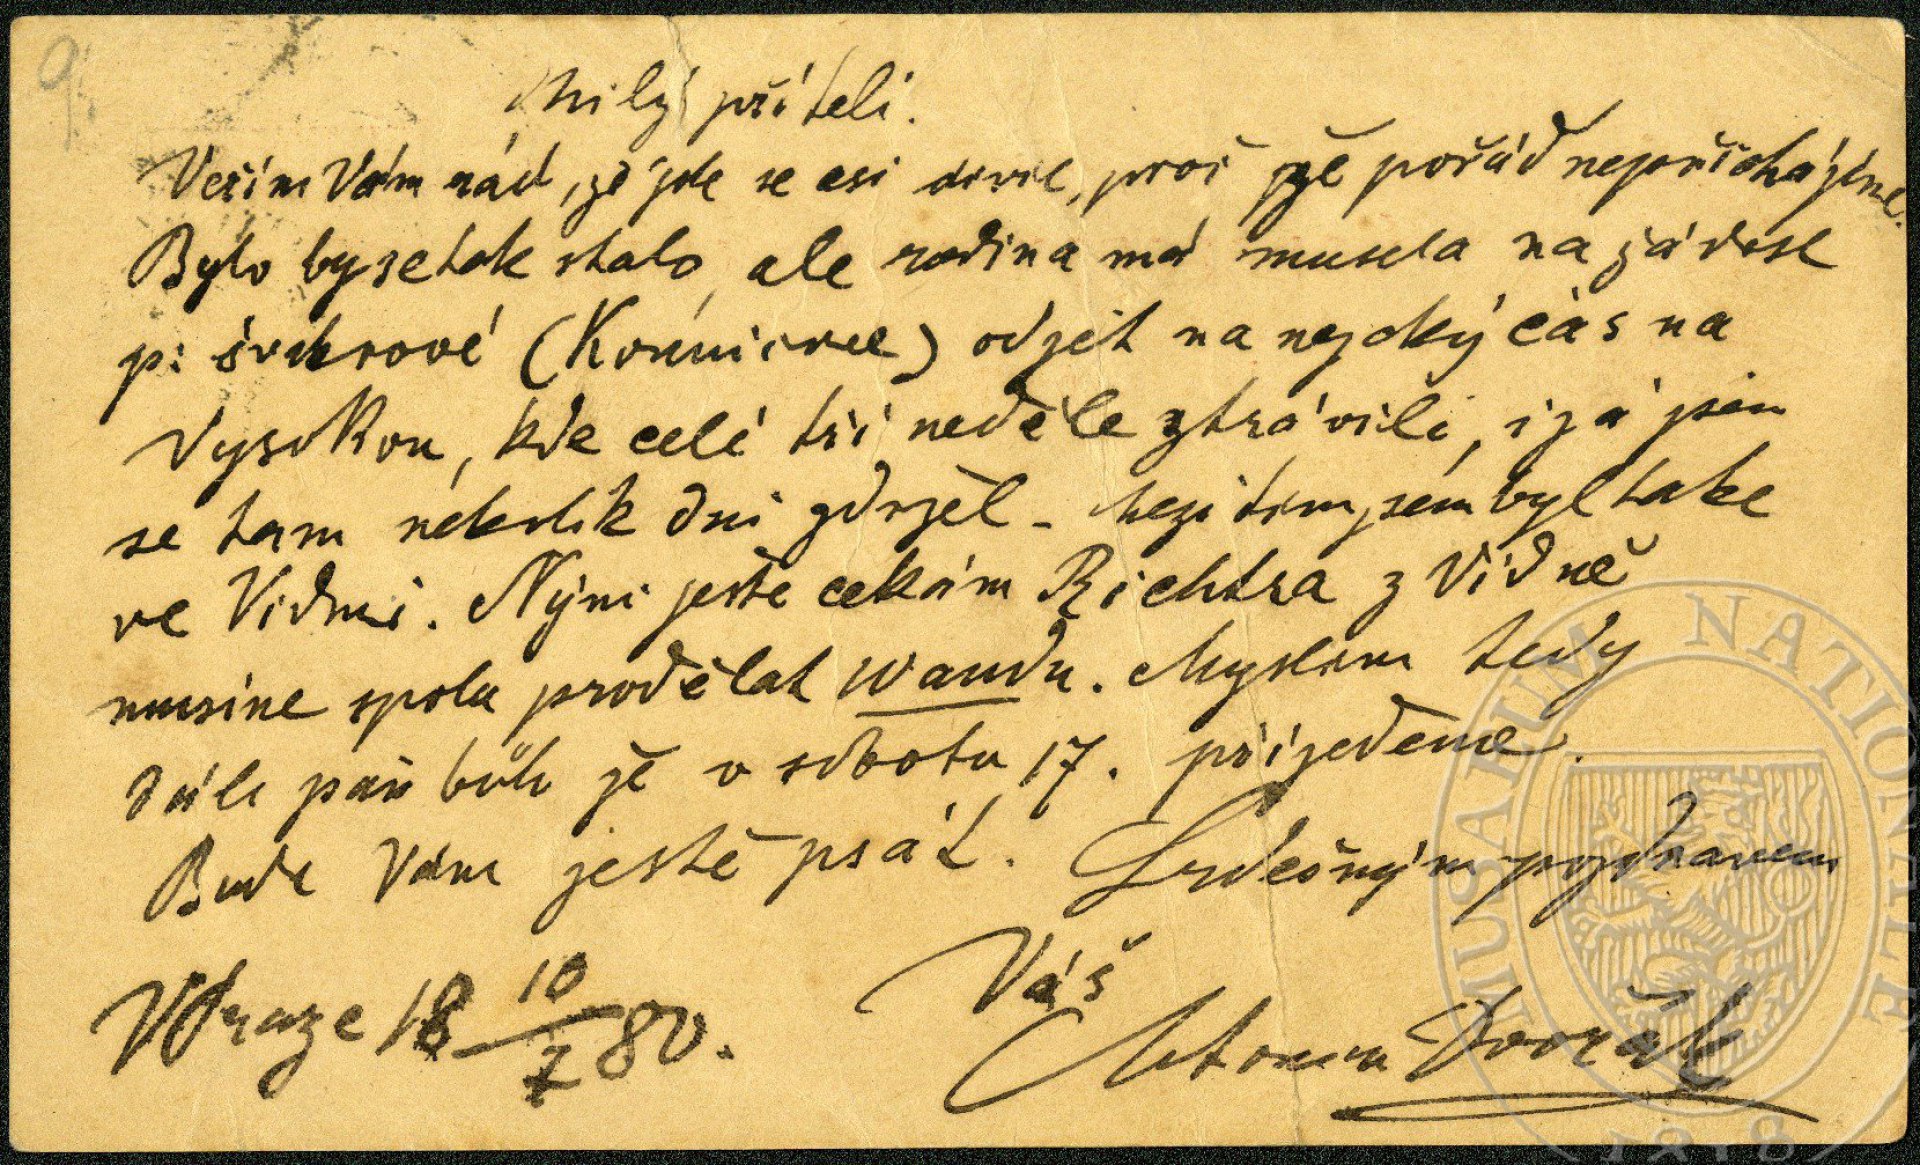 9.
Milý příteli.
Veřím Vám rád, že jste se asi divil, proč že pořád nepřicházíme.
Bylo by se tak stalo, ale rodina má musela na žádost
p: švakrové (Kounicové) odjet na nejaký čas na
Vysokou, kde celé tři neděle ztrávili, i já jsem
se tam nekolik dni zdržel – Mezi tim jsem byl take
ve Vidni. Nýni ješte cekám Richtra z Vídně
musíme spolu prodělat Wandu. Myslim tedy
dáli pán bůh že v sobotu 17. přijedeme.
Budu Vám jestě psát. Srdečným pozdravem
Váš
V Praze 18 10/7 80.
Antonin Dvořák
MUSAEUM NATIONALE
1818